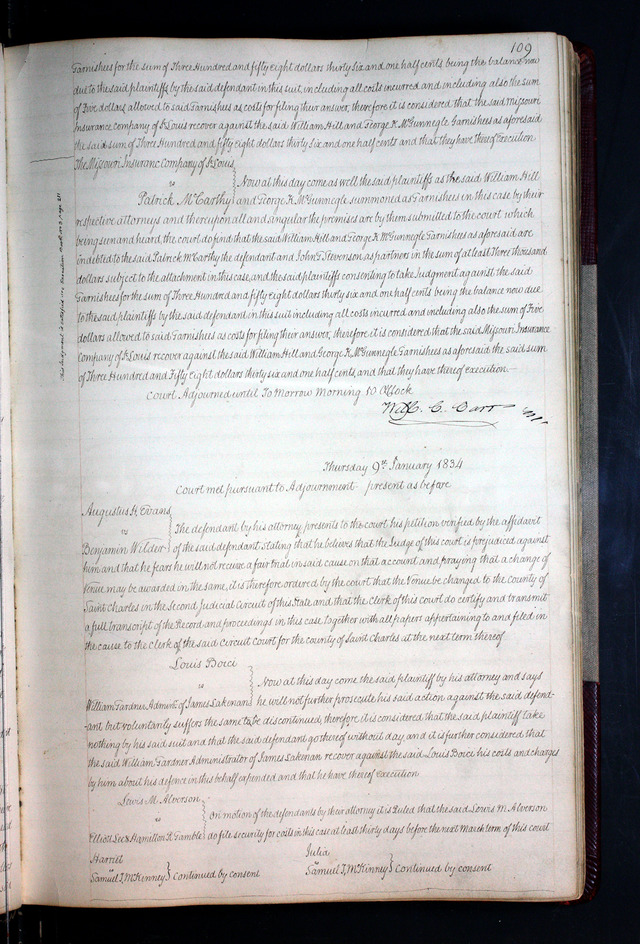 109
Garnishees for the sum of Three Hundred and fifty eight dollars thirty six and one half cents being the balance now
due to the said plaintiffs by the said defendant in this suit, including all costs incurred and including also the sum
of Five dollars, allowed to said Garnishees as costs for filing their answer, therefore it is considered that the said Missouri
Insurance Company of St Louis recover against the said William Hill and George K. McGunnegle Garnishees as aforesaid
the said sum of Three Hundred and fifty eight dollars thirty six and one half cents and that they have thereof Execution
The Missouri Insuranc Company of St Louis
vs
Now at this day come as well the said plaintiffs as the said William Hill
Patrick McCarthy and George K. McGunnegle summoned as Garnishees in this case by their
respective attorneys and thereupon all and singular the premises are by them submitted to the court which
being seen and heard, the court do find that the said William Hill and George K. McGunnegle Garnishees as aforesaid are
indebted to the said Patrick McCarthy the defendant and John G. Stevenson as partners in the sum of at least Three thousand
dollars subject to the attachment in this case, and the said plaintiffs consenting to take Judgment against the said
Garnishees for the sum of Three Hundred and Fifty eight dollars thirty six and one half cents being the balance now due
to the said plaintiffs by the said defendant in this suit including all costs incurred and including also the sum of Five
dollars allowed to said Garnishees as costs for filing their answer, therefore it is considered that the said Missouri Insurance
Company of St Louis recover against the said William Hill and George K. McGunnegle Garnishees as aforesaid the said sum
of Three Hundred and Fifty eight dollars thirty six and one half cents, and that they have thereof execution
Court Adjourned until To Morrow Morning 10 OClock
Wm. C. Carr
Thursday 9th January 1834
Court met pursuant to Adjournment present as before
Augustus H. Evans
vs
The defendant by his attorney, presents to the court his petition verified by the affidavit
Benjamin Wilder of the said defendant stating that he believes that the Judge of this court is prejudiced against
him and that he fears he will not receive a fair trial in said cause on that account and praying that a change of
Venue may be awarded in the same, it is therefore ordered by the court that the Venue be changed to the County of
Saint Charles in the Second Judicial Circuit of this State and that the Clerk of this court do certify and transmit
a full transcript of the Record and proceedings in this case, together with all papers appertaining to and filed in
the cause to the Clerk of the said Circuit Court for the county of Saint Charles at the next term thereof
Louis Boici
vs
Now at this day come the said plaintiff by his attorney and says
William Gardner Admr. of James Lakenan he will not further prosecute his said action against the said defend-
-ant but voluntarily suffers the same to be discontinued, therefore it is considered that the said plaintiff take
nothing by his said suit and that the said defendant go thereof without day, and it is further considered that
the said William Gardner Administrator of James Lakenan recover against the said Louis Boici his costs and charges
by him about his defence in this behalf expended and that he have thereof execution
Lewis M. Alverson
vs
On motion of the defendants by their attorney it is Ruled that the said Lewis M. Alverson
Elliott Lee & Hamilton R. Gamble do file security for costs in this case at least thirty days before the next March term of this court
Harriet
vs
Samuel T. McKenney Continued by consent
Julia
vs
Samuel T. McKinney Continued by consent